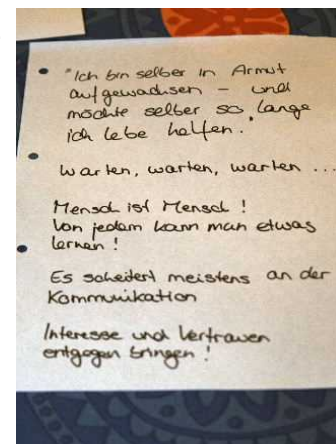 "Ich bin selber in Armut
aufgewachsen - und
möchte selber so lange
ich lebe helfen."
Warten, warten, warten ...
Mensch ist Mensch !
Von jedem kann man etwas
lernen !
Es scheitert meistens an der
Kommunikation
Interesse und Vertrauen
entgegen bringen !